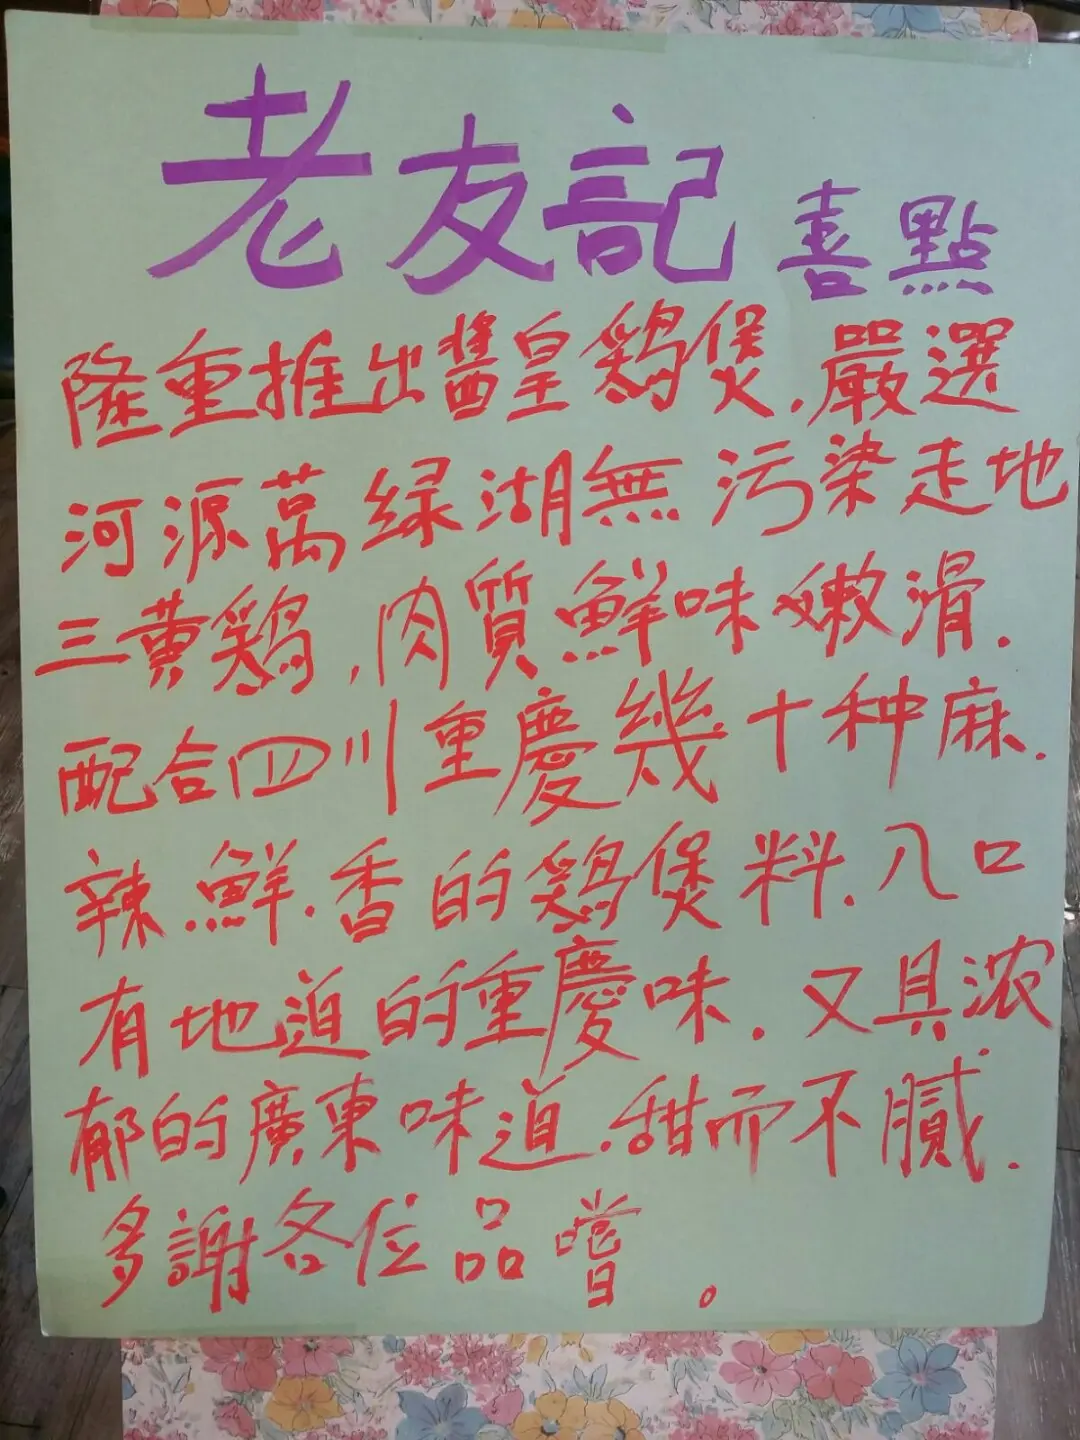 老友記 喜點
隆重推出醬皇鷄煲.嚴選
河源萬绿湖無污染走地
三黄鷄,肉質鮮味嫩滑.
配合四川重慶幾十种麻.
辣.鮮.香的鷄煲料.入口
有地道的重慶味.又具浓
郁的廣東味道.甜而不膩.
多謝各位品嚐。